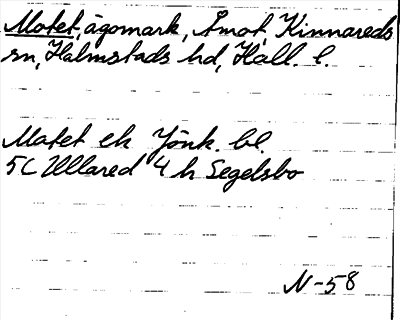 Motet, ägomark, Åmot, Kinnareds
sn, Halmstads hd, Hall. l.
Matet ek Jönk. bl.
5C Ullared 4 h Segelsbo
N-58